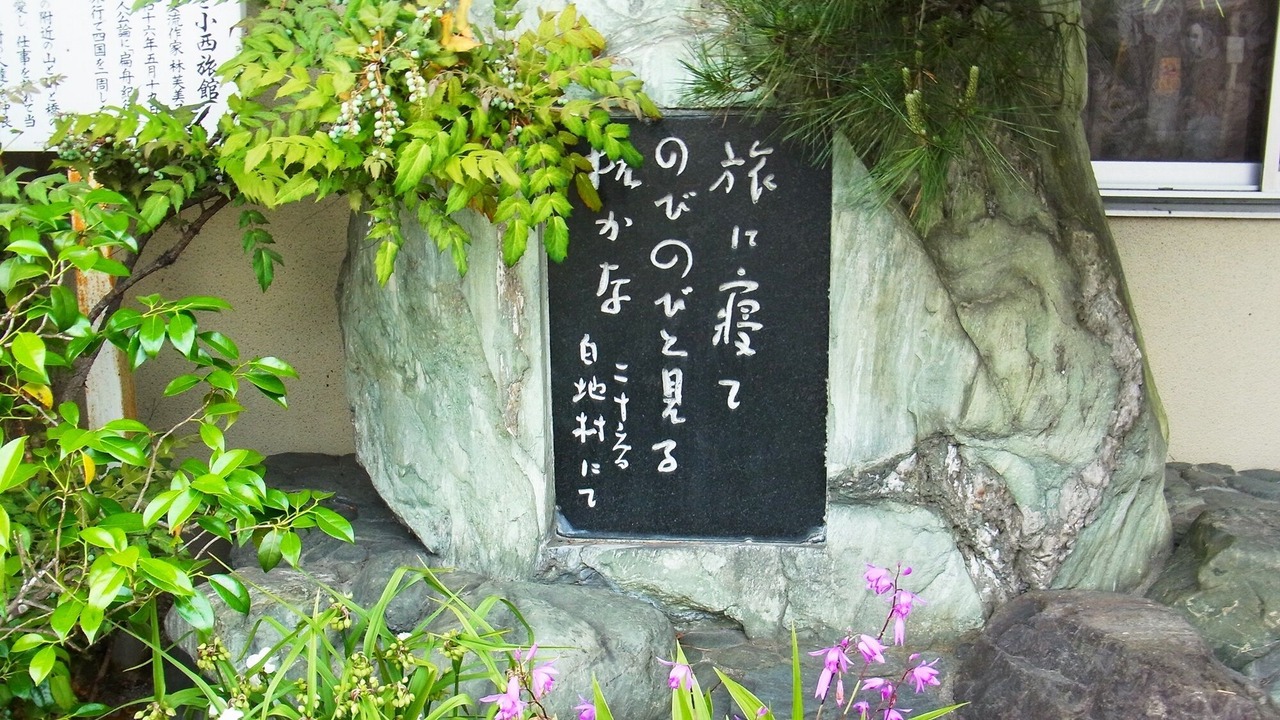 小西旅館
流作家林芙美
十六年五月十
人公論に扁舟紀
行て四国を一周
の附近の山と
愛し仕事を
旅に寝て
のびのびと見る
枕かな
白地村にて